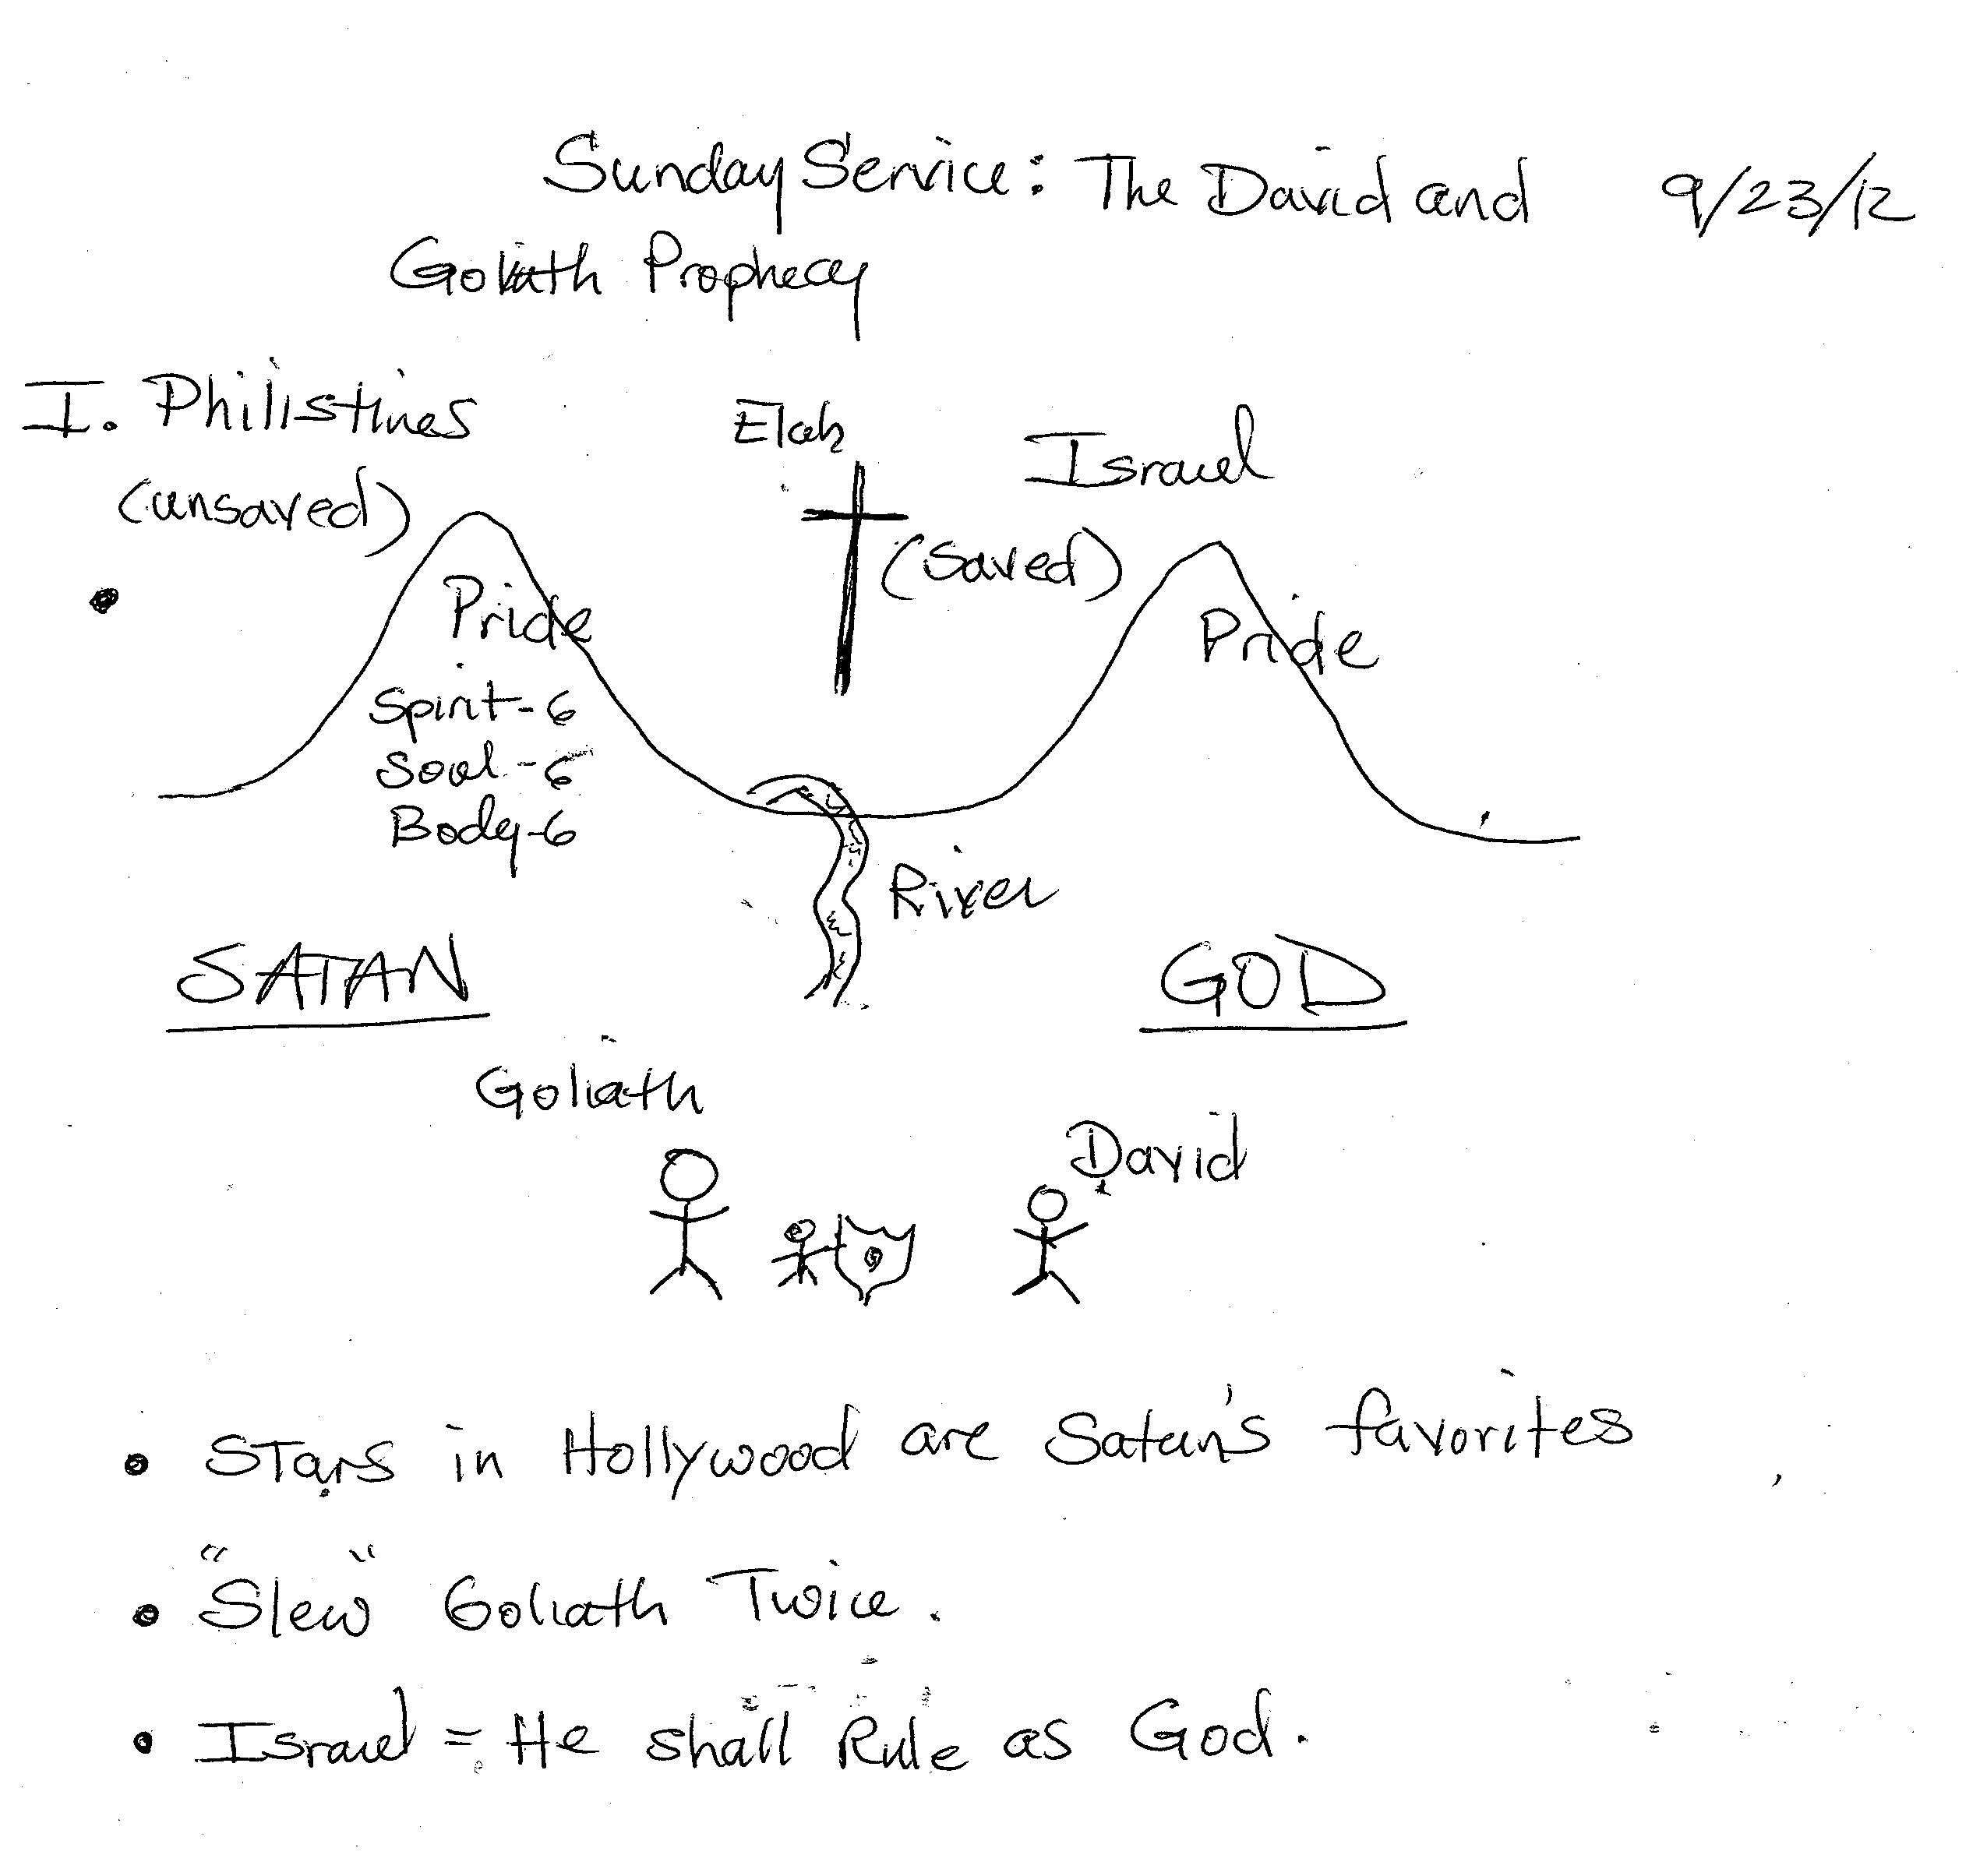 Sunday Service: The David and 9/23/12
Goliath Prophecy
I. Philistines
(unsaved)
Elah
Israel
(saved)
•
Pride
Pride
Spirit-6
Soul-6
Body-6
River
SATAN
GOD
Goliath
David
• Stars in Hollywood are Satan's favorites
• "Slew" Goliath Twice.
• Israel = He shall Rule as God.